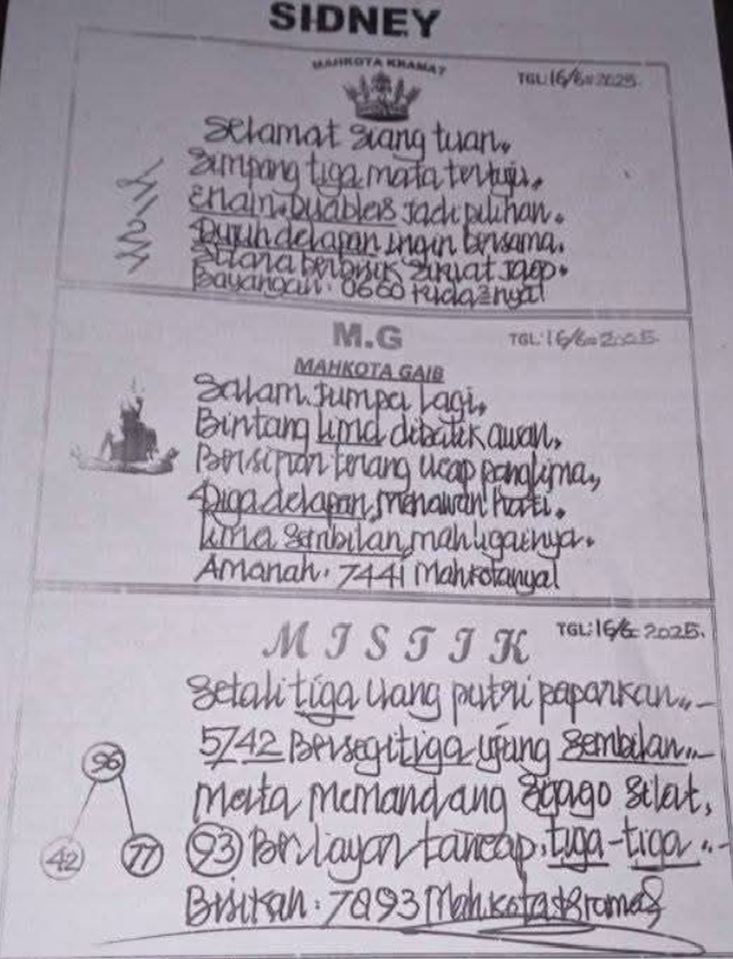 SIDNEY
MAHKOTA KRAMAT
TGL: 16/6=2025.
Selamat siang tuan.
Simpang tiga mata tertuju.
Enam. jadi pilihan.
Tujuh delapan ingin bersama.
berbisik siap.
Bayangan. 0660 Kuda2nya!
M.G
TGL: 16/6=2025.
MAHKOTA GAIB
Salam. Jumpa Lagi.
Bintang lima dibalik awan.
Bersinar terang ucap panglima.,
Tiga delapan, menawan hati.
Lima Sembilan, mahligainya.
Amanah. 7441 Mahkotanya!
MISTIK
TGL: 16/6= 2025.
Setali tiga uang putri paparkan..-
5742 Bersegitiga ujung sembilan..-
96
Mata memandang Jago Silat.
42 77 93 Berlayar tancap. tiga-tiga..-
Bisikan: 7893 Mahkota Kramat